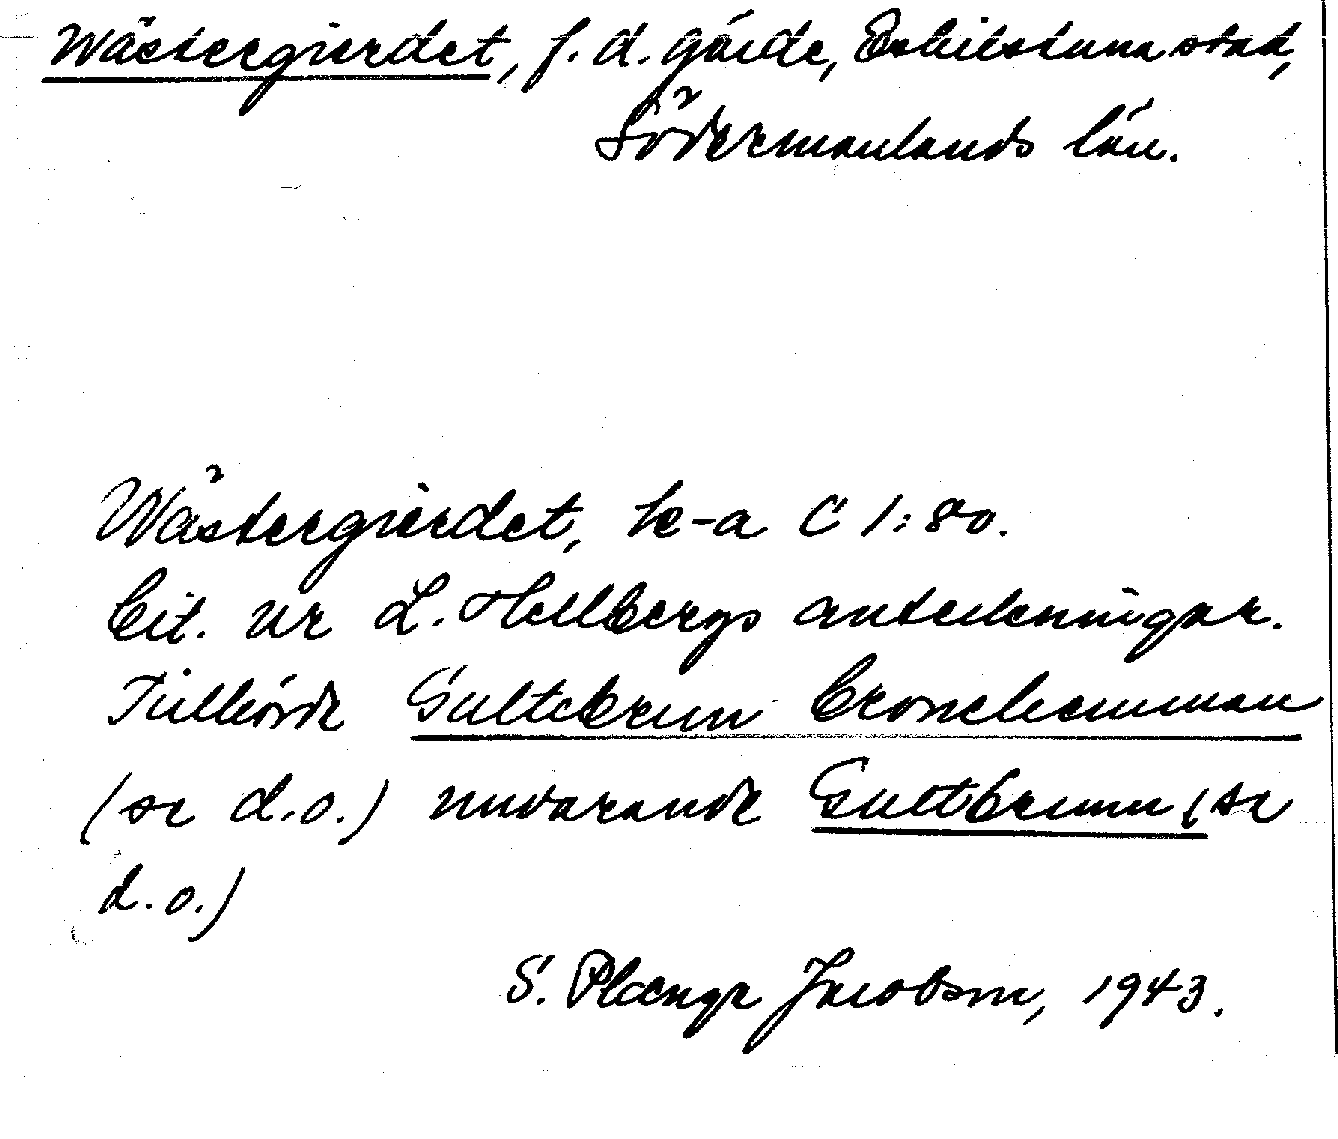 Wästergierdet, f.d. gärde, Eskilstuna stad,
Södermanlands län.
Wästergierdet, k-a C 1:80.
Cit. ur L. Hellbergs anteckningar.
Tillhörde Gultebrun Cronehemman
(se d.o.) nuvarande Gultbrunn (se
d.o.)
S. Plænge Jacobson, 1943.